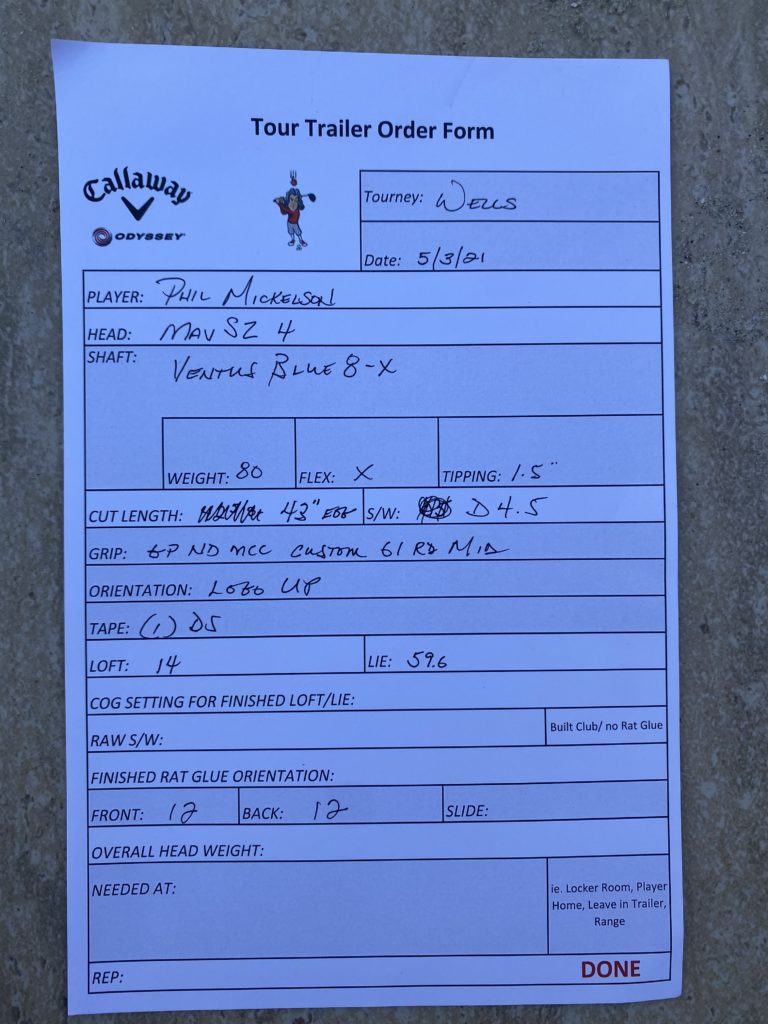 Tour Trailer Order Form
Callaway
ODYSSEY
Tourney: WELLS
Date: 5/3/21
PLAYER: PHIL MICKELSON
HEAD: MAV SZ 4
SHAFT: VENTUS BLUE 8-X
WEIGHT: 80 FLEX: X TIPPING: 1.5"
CUT LENGTH: 43" EOG S/W: D4.5
GRIP: GP ND MCC CUSTOM 61 RD MID
ORIENTATION: LOGO UP
TAPE: (1) DS
LOFT: 14 LIE: 59.6
COG SETTING FOR FINISHED LOFT/LIE:
RAW S/W: Built Club/ no Rat Glue
FINISHED RAT GLUE ORIENTATION:
FRONT: 12 BACK: 12 SLIDE:
OVERALL HEAD WEIGHT:
NEEDED AT:
ie. Locker Room, Player
Home, Leave in Trailer,
Range
REP: DONE